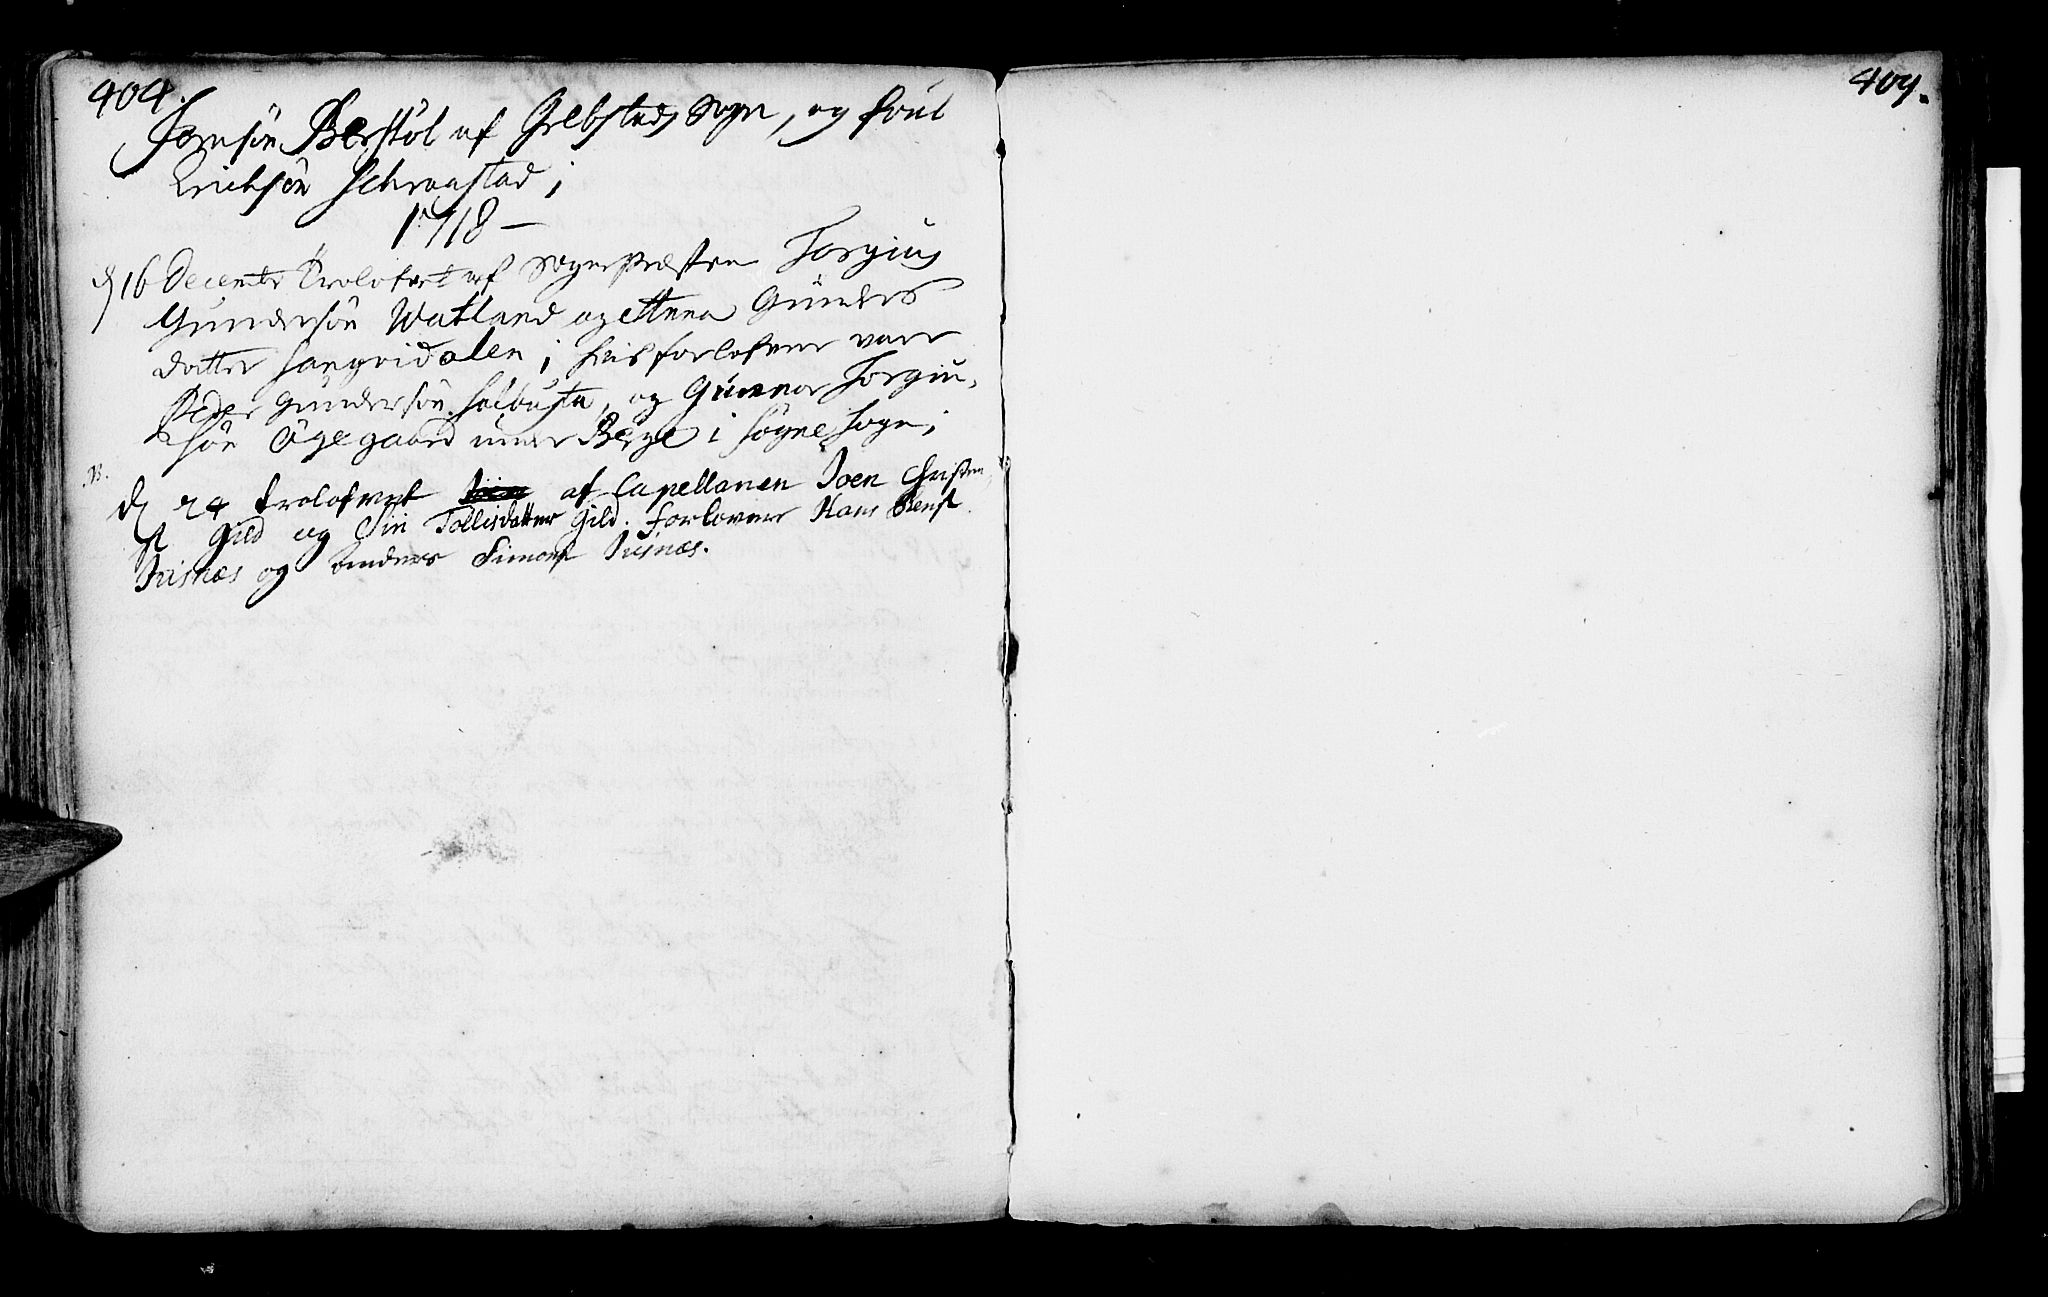 404.
Jensön Berstöl af Grebstad Sogn, og Poul
Erichsön Schraastad;
1718 -
d 16 Decembr Trolofvet af Sognepræsten Torgius
Gundersön Watland og Anna Gunders
datter Sangvidalen; hvis forlofvere vare
Peder Gundersön Holbusta, og Gunnar Torgiu,
sön Øygegaard under Berge i Søgne Sogn;
NB.
d 24 trolofvet af Capellanen Joen Christen
s. Gild og Siri Tollisdatter Gild. forlovere Hans Bens.
Trisnæs og anders Simons. Trisnæs.
405.